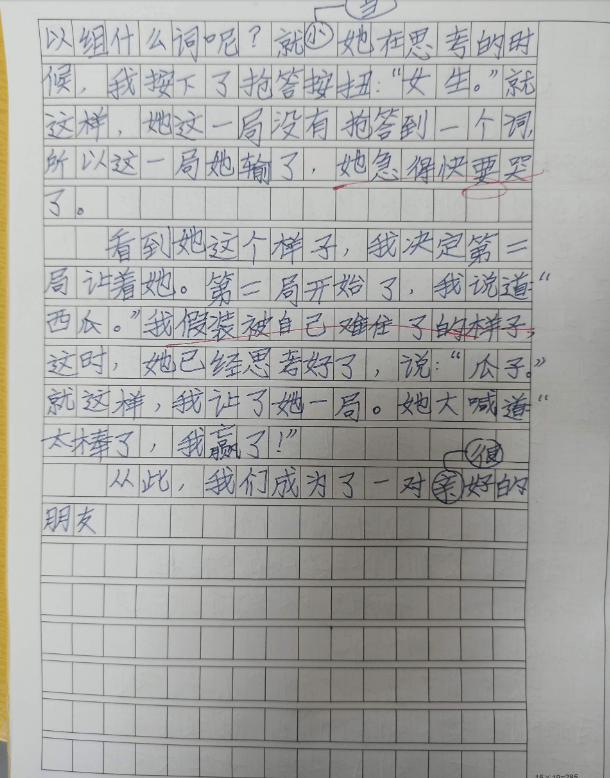 当
以组什么词呢？就小她在思考的时
候，我按下了抢答按扭：“女生。”就
这样，她这一局没有抢答到一个词，
所以这一局她输了，她急得快要哭
了。
看到她这个样子，我决定第二
局让着她。第二局开始了，我说道“
西瓜。”我假装被自己难住了的样子，
这时，她已经思考好了，说：“瓜子。”
就这样，我让了她一局。她大喊道“
太棒了，我赢了！”
很
从此，我们成为了一对亲好的
朋友
15×19=285